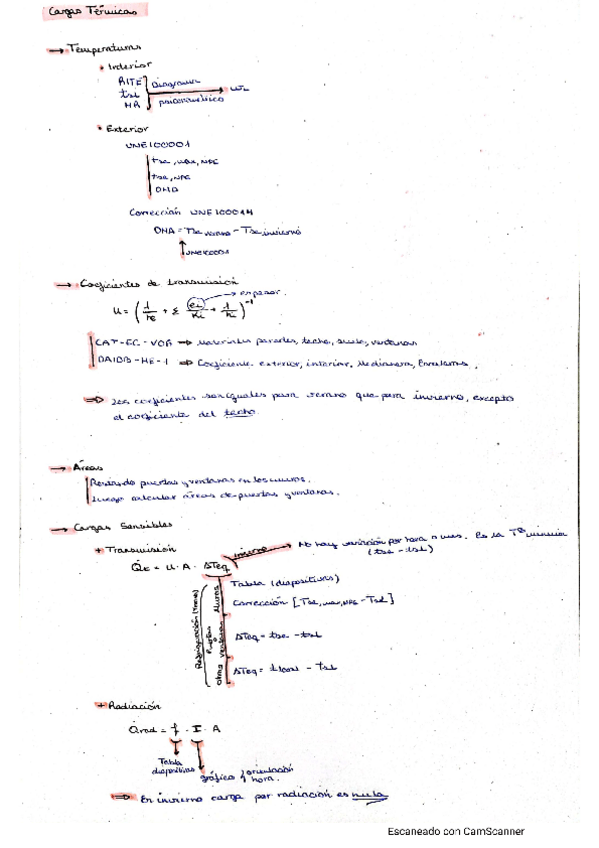 Cargas Térmicas
→ Temperaturas
• Interior
RITE
tsi
HR
Diagrama psicrométrico
• Exterior
UNE100001
Tse, max, NPE
tse, NPE
OMD
Corrección UNE100014
OMA = Tse verano - Tse invierno
UNE100001
→ Coeficientes de transmisión
U = (1/he + Σ ei/Ki + 1/hi)⁻¹
→ espesor.
CAT-EC-VOR ⇒ Materiales paredes, techo, suelo, ventanas
DAIDB-HE-1 ⇒ Coeficiente exterior, interior, Medianera,
⇒ Los coeficientes son iguales para verano que para invierno, excepto
el coeficiente del techo.
→ Áreas
Restando puertas y ventanas en los muros.
Luego calcular áreas de puertas y ventanas.
→ Cargas Sensibles
+ Transmisión
invierno → No hay variación por hora o mes. Es la Tª mínima
(tse - tsi)
QE = U · A · ΔTeq
Muros
Tabla (diapositivas)
Corrección [Tse, max, NPE - Tsi]
Puertas
ΔTeq = tse - tsi
otras ventanas
ΔTeq = tlocal - tsi
+ Radiación
Qrad = f · I · A
Tabla diapositivas
gráfico orientación hora.
⇒ En invierno carga por radiación es nula
Escaneado con CamScanner